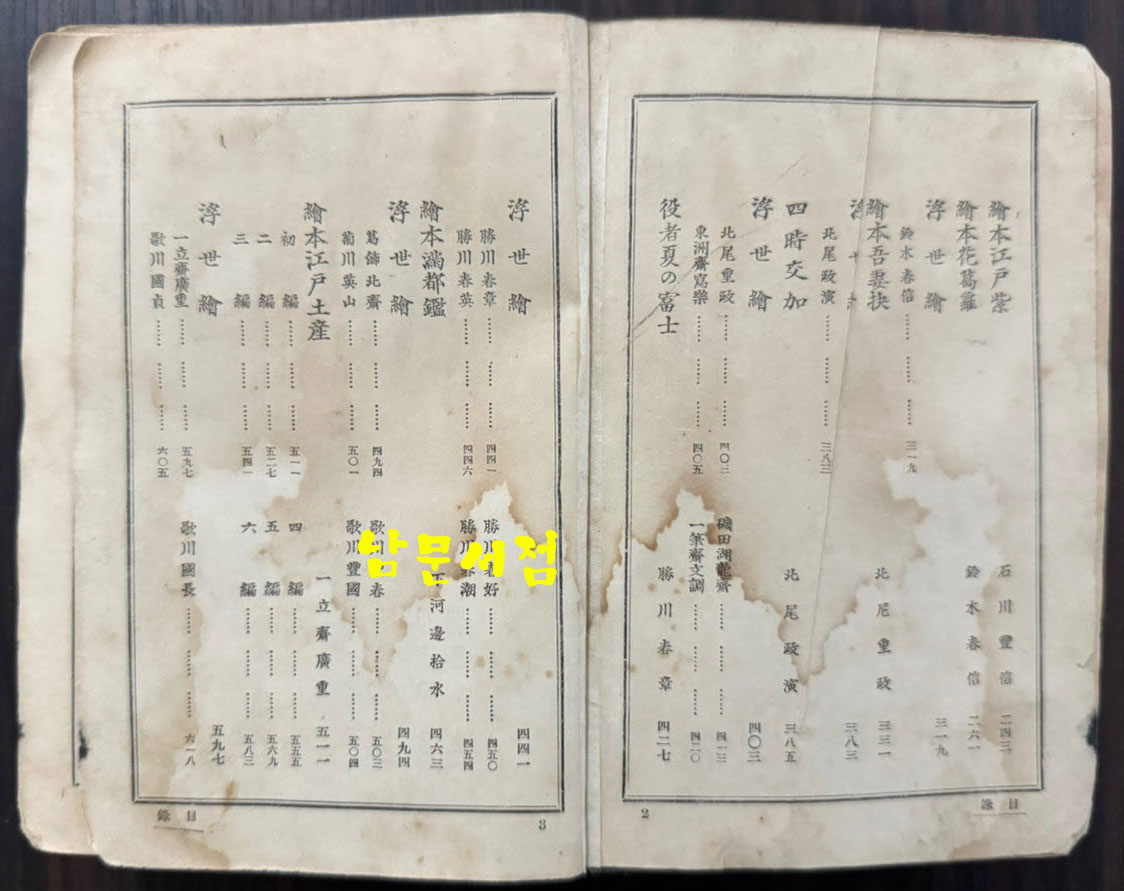 繪本江戶紫 石川豐信 二四三
繪本花葛蘿 鈴木春信 二六一
浮世繪 三一九
鈴木春信 …… …… …… 三一九
繪本吾妻抉 北尾重政 三三一
浮世繪 三八三
北尾政演 …… …… …… 三八三
四時交加 北尾政演 三八五
浮世繪 四〇三
北尾重政 …… …… …… 四〇三 磯田湖龍齋 …… …… 四一三
東洲齋寫樂 …… …… …… 四〇五 一筆齋文調 …… …… 四二〇
役者夏の富士 勝川春章 四二七
目錄
2
浮世繪 四四一
勝川春章 …… …… …… 四四一 勝川春好 …… …… …… 四五〇
勝川春英 …… …… …… 四四六 勝川春潮 …… …… …… 四五四
繪本滿都鑑 下河邊拾水 四六三
浮世繪 四九四
葛飾北齋 …… …… …… 四九四 歌川 春 …… …… …… 五〇三
菊川英山 …… …… …… 五〇一 歌川豐國 …… …… …… 五〇四
繪本江戶土産 一立齋廣重 五一一
初編 …… …… …… 五一一 四編 …… …… …… 五五五
二編 …… …… …… 五二七 五編 …… …… …… 五六九
三編 …… …… …… 五四一 六編 …… …… …… 五八三
浮世繪 五九七
一立齋廣重 …… …… …… 五九七 歌川國長 …… …… …… 六一八
歌川國貞 …… …… …… 六〇五
目錄
3
남문서점